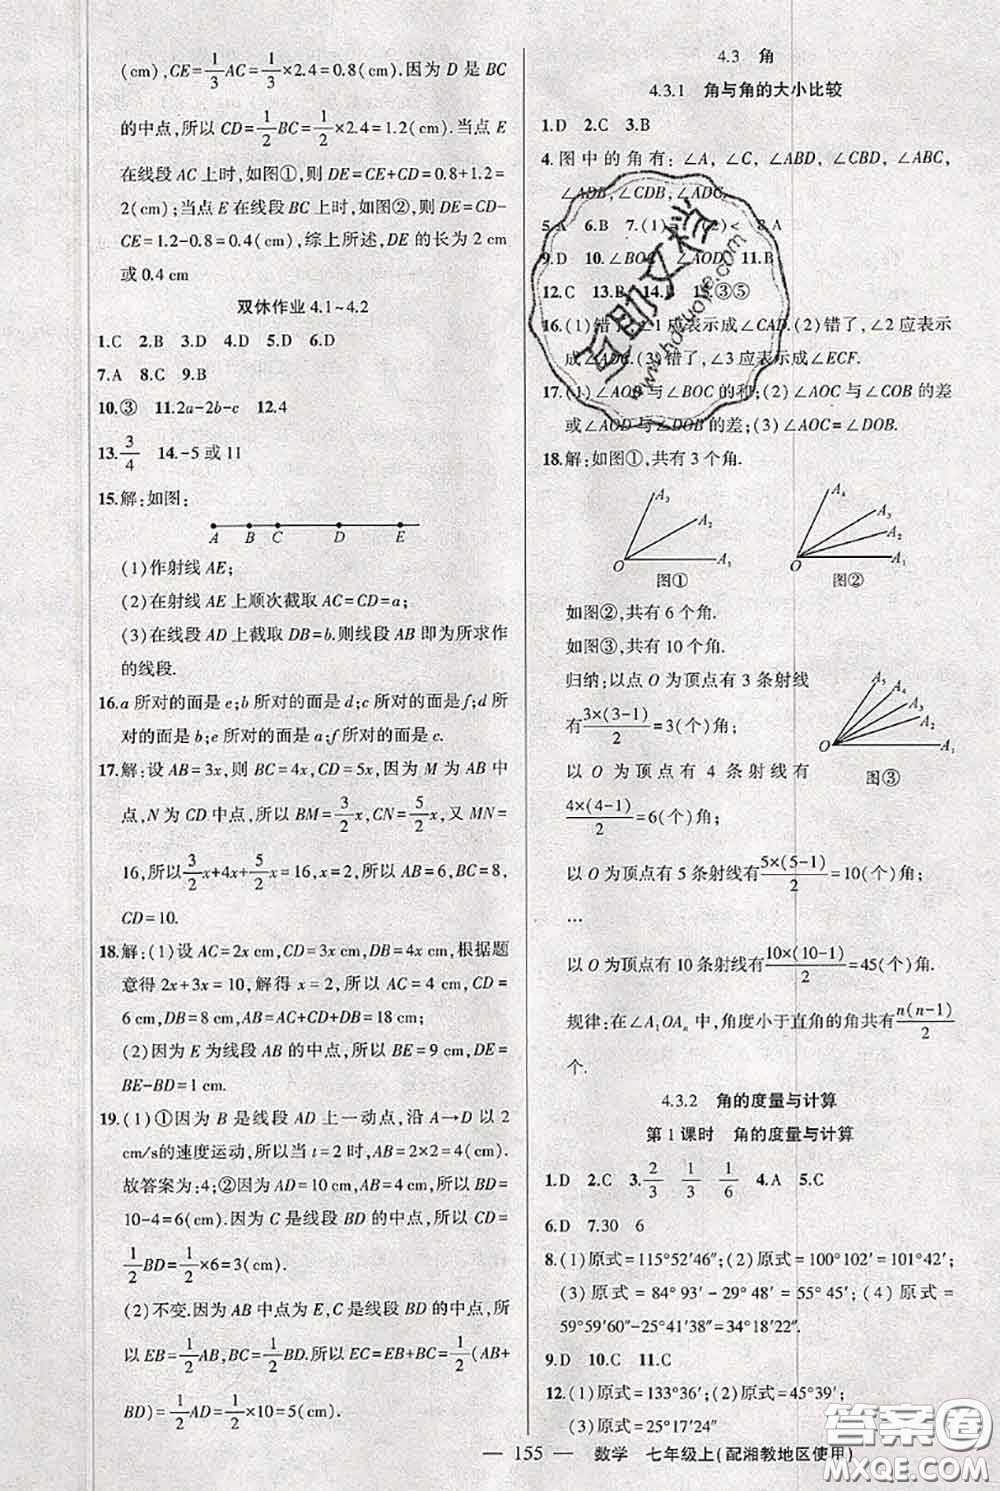 (cm),CE=1/3AC=1/3×2.4=0.8(cm).因为 D 是 BC
的中点,所以 CD=1/2BC=1/2×2.4=1.2(cm).当点 E
在线段 AC 上时,如图①,则 DE=CE+CD=0.8+1.2=
2(cm);当点 E 在线段 BC 上时,如图②,则 DE=CD-
CE=1.2-0.8=0.4(cm),综上所述,DE 的长为 2 cm
或 0.4 cm
双休作业 4.1~4.2
1.C 2.B 3.D 4.D 5.D 6.D
7.A 8.C 9.B
10.③ 11.2a-2b-c 12.4
13.3/4 14.-5 或 11
15.解:如图:
A B C D E
(1)作射线 AE;
(2)在射线 AE 上顺次截取 AC=CD=a;
(3)在线段 AD 上截取 DB=b.则线段 AB 即为所求作
的线段.
16.a 所对的面是 e;b 所对的面是 d;c 所对的面是 f;d 所
对的面是 b;e 所对的面是 a;f 所对的面是 c.
17.解:设 AB=3x,则 BC=4x,CD=5x,因为 M 为 AB 中
点,N 为 CD 中点,所以 BM=3/2x,CN=5/2x,又 MN=
16,所以3/2x+4x+5/2x=16,x=2,所以 AB=6,BC=8,
CD=10.
18.解:(1)设 AC=2x cm,CD=3x cm,DB=4x cm,根据题
意得 2x+3x=10,解得 x=2,所以 AC=4 cm,CD=
6 cm,DB=8 cm,AB=AC+CD+DB=18 cm;
(2)因为 E 为线段 AB 的中点,所以 BE=9 cm,DE=
BE-BD=1 cm.
19.(1)①因为 B 是线段 AD 上一动点,沿 A→D 以 2
cm/s的速度运动,所以当 t=2 时,AB=2×2=4(cm).
故答案为:4;②因为 AD=10 cm,AB=4 cm,所以 BD=
10-4=6(cm).因为 C 是线段 BD 的中点,所以 CD=
1/2BD=1/2×6=3(cm);
(2)不变.因为 AB 中点为 E,C 是线段 BD 的中点,所
以 EB=1/2AB,BC=1/2BD.所以 EC=EB+BC=1/2(AB+
BD)=1/2AD=1/2×10=5(cm).
4.3 角
4.3.1 角与角的大小比较
1.D 2.C 3.B
4.图中的角有:∠A,∠C,∠ABD,∠CBD,∠ABC,
∠ADB,∠CDB,∠ADC.
5.A 6.B 7.(1) (2)< 8.A
9.D 10.∠BOC ∠AOD 11.B
12.C 13.B 14. 15.③⑤
16.(1)错了,∠1 应表示成∠CAD.(2)错了,∠2 应表示
成∠AEC.(3)错了,∠3 应表示成∠ECF.
17.(1)∠AOB 与∠BOC 的和;(2)∠AOC 与∠COB 的差
或∠AOD 与∠DOB 的差;(3)∠AOC=∠DOB.
18.解:如图①,共有 3 个角.
A3 A2 O A1 图①
A4 A3 A2 O A1 图②
如图②,共有 6 个角.
如图③,共有 10 个角.
归纳:以点 O 为顶点有 3 条射线
有3×(3-1)/2=3(个)角;
A5 A4 A3 A2 O A1 图③
以 O 为顶点有 4 条射线有
4×(4-1)/2=6(个)角;
以 O 为顶点有 5 条射线有5×(5-1)/2=10(个)角;
…
以 O 为顶点有 10 条射线有10×(10-1)/2=45(个)角.
规律:在∠A1OAn 中,角度小于直角的角共有n(n-1)/2
个.
4.3.2 角的度量与计算
第 1 课时 角的度量与计算
1.D 2.C 3.2/3 1/3 1/6 4.A 5.C
6.D 7.30 6
8.(1)原式=115°52′46″;(2)原式=100°102′=101°42′;
(3)原式=84°93′-29°48′=55°45′;(4)原式=
59°59′60″-25°41′38″=34°18′22″.
9.D 10.C 11.C
12.(1)原式=133°36′;(2)原式=45°39′;
(3)原式=25°17′24″
— 155 — 数学 七年级上(配湘教地区使用)
互助文档
www.hdzuoye.com
答案圈
MXQE.COM